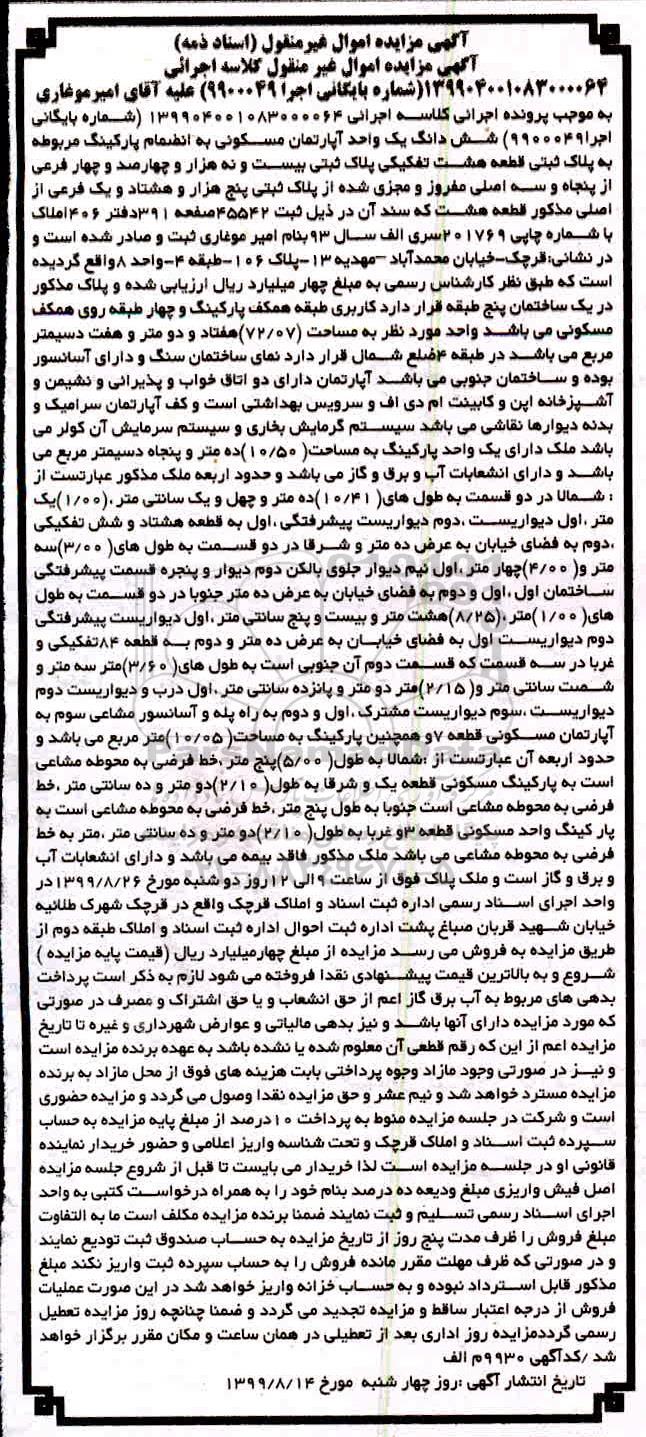 آگهی مزایده اموال غیرمنقول (اسناد ذمه)
آگهی مزایده اموال غیر منقول کلاسه اجرائی
۱۳۹۹۰۴۰۰۱۰۸۳۰۰۰۰۶۴(شماره بایگانی اجرا ۹۹۰۰۰۴۹) علیه آقای امیرموغاری
به موجب پرونده اجرائی کلاسه اجرائی ۱۳۹۹۰۴۰۰۱۰۸۳۰۰۰۰۶۴ (شماره بایگانی
اجرا۹۹۰۰۰۴۹) شش دانگ یک واحد آپارتمان مسکونی به انضمام پارکینگ مربوطه
به پلاک ثبتی قطعه هشت تفکیکی پلاک ثبتی بیست و نه هزار و چهارصد و چهار فرعی
از پنجاه و سه اصلی مفروز و مجزی شده از پلاک ثبتی پنج هزار و هشتاد و یک فرعی از
اصلی مذکور قطعه هشت که سند آن در ذیل ثبت ۴۵۵۴۲صفحه ۳۹۱دفتر ۴۰۶املاک
با شماره چاپی ۲۰۱۷۶۹سری الف سال ۹۳بنام امیر موغاری ثبت و صادر شده است و
در نشانی:قرچک-خیابان محمدآباد –مهدیه ۱۳-پلاک ۱۰۶-طبقه ۴-واحد ۸واقع گردیده
است که طبق نظر کارشناس رسمی به مبلغ چهار میلیارد ریال ارزیابی شده و پلاک مذکور
در یک ساختمان پنج طبقه قرار دارد کاربری طبقه همکف پارکینگ و چهار طبقه روی همکف
مسکونی می باشد واحد مورد نظر به مساحت (۷۲/۰۷)هفتاد و دو متر و هفت دسیمتر
مربع می باشد در طبقه ۴ضلع شمال قرار دارد نمای ساختمان سنگ و دارای آسانسور
بوده و ساختمان جنوبی می باشد آپارتمان دارای دو اتاق خواب و پذیرائی و نشیمن و
آشپزخانه اپن و کابینت ام دی اف و سرویس بهداشتی است و کف آپارتمان سرامیک و
بدنه دیوارها نقاشی می باشد سیستم گرمایش بخاری و سیستم سرمایش آن کولر می
باشد ملک دارای یک واحد پارکینگ به مساحت( ۱۰/۵۰)ده متر و پنجاه دسیمتر مربع می
باشد و دارای انشعابات آب و برق و گاز می باشد و حدود اربعه ملک مذکور عبارتست از
: شمالا در دو قسمت به طول های( ۱۰/۴۱)ده متر و چهل و یک سانتی متر ،(۱/۰۰)یک
متر ،اول دیواریست ،دوم دیواریست پیشرفتگی ،اول به قطعه هشتاد و شش تفکیکی
،دوم به فضای خیابان به عرض ده متر و شرقا در دو قسمت به طول های( ۳/۰۰)سه
متر و( ۴/۰۰)چهار متر ،اول نیم دیوار جلوی بالکن دوم دیوار و پنجره قسمت پیشرفتگی
ساختمان اول ،اول و دوم به فضای خیابان به عرض ده متر جنوبا در دو قسمت به طول
های( ۱/۰۰)متر ،(۸/۲۵)هشت متر و بیست و پنج سانتی متر ،اول دیواریست پیشرفتگی
دوم دیواریست اول به فضای خیابان به عرض ده متر و دوم به قطعه ۸۴تفکیکی و
غربا در سه قسمت که قسمت دوم آن جنوبی است به طول های( ۳/۶۰)متر سه متر و
شصت سانتی متر و( ۲/۱۵)متر دو متر و پانزده سانتی متر ،اول درب و دیواریست دوم
دیواریست ،سوم دیواریست مشترک ،اول و دوم به راه پله و آسانسور مشاعی سوم به
آپارتمان مسکونی قطعه ۷و همچنین پارکینگ به مساحت( ۱۰/۰۵)متر مربع می باشد و
حدود اربعه آن عبارتست از :شمالا به طول( ۵/۰۰)پنج متر ،خط فرضی به محوطه مشاعی
است به پارکینگ مسکونی قطعه یک و شرقا به طول( ۲/۱۰)دو متر و ده سانتی متر ،خط
فرضی به محوطه مشاعی است جنوبا به طول پنج متر ،خط فرضی به محوطه مشاعی است به
پار کینگ واحد مسکونی قطعه ۳و غربا به طول( ۲/۱۰)دو متر و ده سانتی متر ،متر به خط
فرضی به محوطه مشاعی می باشد ملک مذکور فاقد بیمه می باشد و دارای انشعابات آب
و برق و گاز است و ملک پلاک فوق از ساعت ۹الی ۱۲روز دو شنبه مورخ ۱۳۹۹/۸/۲۶در
واحد اجرای اسناد رسمی اداره ثبت اسناد و املاک قرچک واقع در قرچک شهرک طلائیه
خیابان شهید قربان صباغ پشت اداره ثبت احوال اداره ثبت اسناد و املاک طبقه دوم از
طریق مزایده به فروش می رسد مزایده از مبلغ چهارمیلیارد ریال (قیمت پایه مزایده )
شروع و به بالاترین قیمت پیشنهادی نقدا فروخته می شود لازم به ذکر است پرداخت
بدهی های مربوط به آب برق گاز اعم از حق انشعاب و یا حق اشتراک و مصرف در صورتی
که مورد مزایده دارای آنها باشد و نیز بدهی مالیاتی و عوارض شهرداری و غیره تا تاریخ
مزایده اعم از این که رقم قطعی آن معلوم شده یا نشده باشد به عهده برنده مزایده است
و نیز در صورتی وجود مازاد وجوه پرداختی بابت هزینه های فوق از محل مازاد به برنده
مزایده مسترد خواهد شد و نیم عشر و حق مزایده نقدا وصول می گردد و مزایده حضوری
است و شرکت در جلسه مزایده منوط به پرداخت ۱۰درصد از مبلغ پایه مزایده به حساب
سپرده ثبت اسناد و املاک قرچک و تحت شناسه واریز اعلامی و حضور خریدار نماینده
قانونی او در جلسه مزایده است لذا خریدار می بایست تا قبل از شروع جلسه مزایده
اصل فیش واریزی مبلغ ودیعه ده درصد بنام خود را به همراه درخواست کتبی به واحد
اجرای اسناد رسمی تسلیم و ثبت نمایند ضمنا برنده مزایده مکلف است ما به التفاوت
مبلغ فروش را ظرف مدت پنج روز از تاریخ مزایده به حساب صندوق ثبت تودیع نمایند
و در صورتی که ظرف مهلت مقرر مانده فروش را به حساب سپرده ثبت واریز نکند مبلغ
مذکور قابل استرداد نبوده و به حساب خزانه واریز خواهد شد در این صورت عملیات
فروش از درجه اعتبار ساقط و مزایده تجدید می گردد و ضمنا چنانچه روز مزایده تعطیل
رسمی گرددمزایده روز اداری بعد از تعطیلی در همان ساعت و مکان مقرر برگزار خواهد
شد /کدآگهی ۹۹۳۰م الف
تاریخ انتشار آگهی :روز چهار شنبه مورخ ۱۳۹۹/۸/۱۴
ParsNamadData